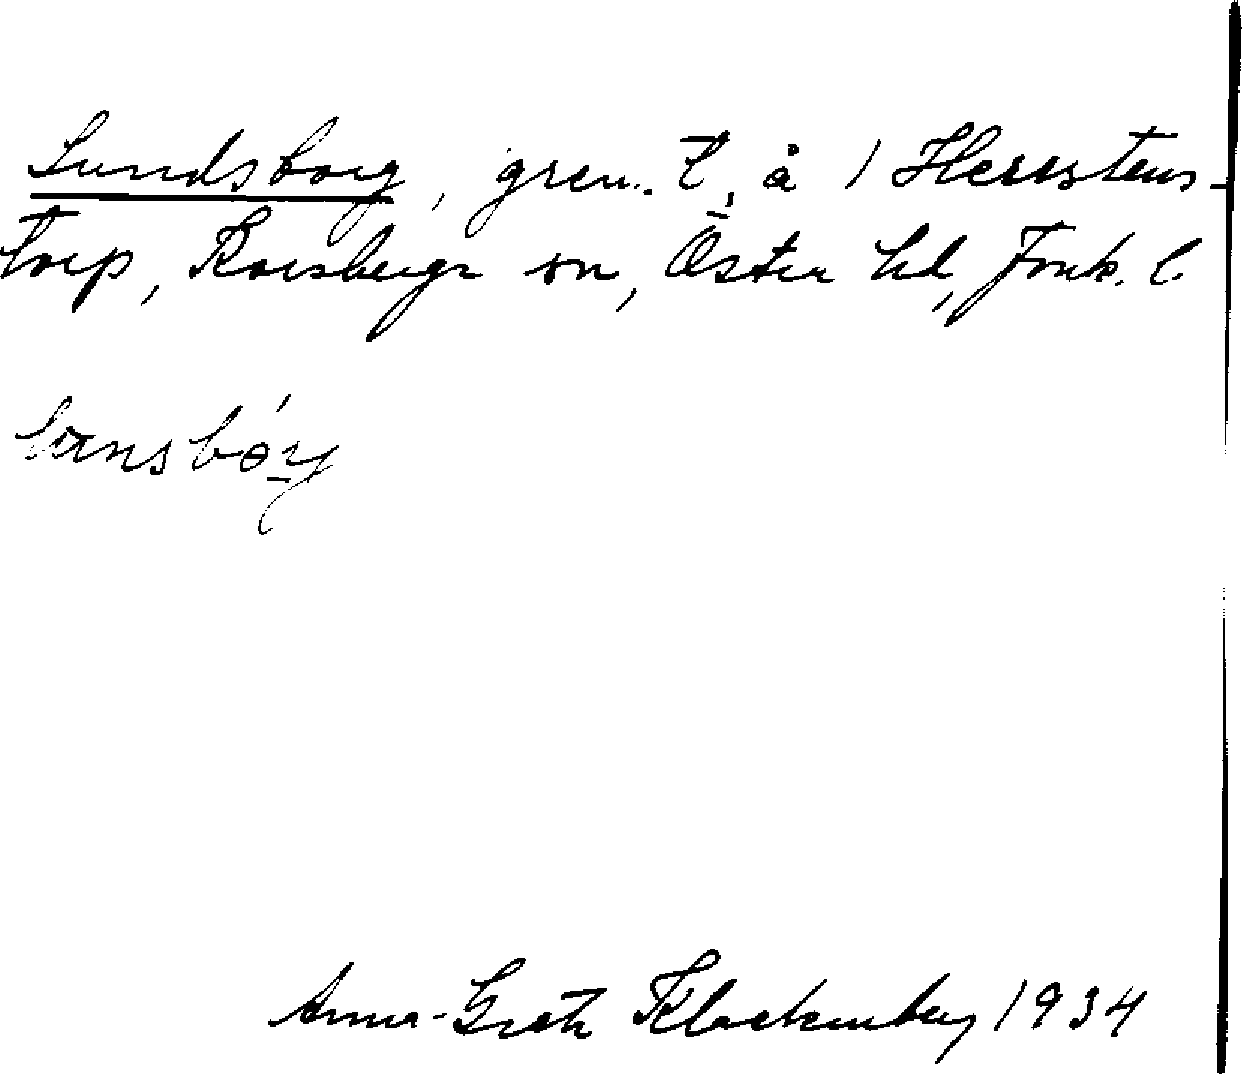 Lundsborg, gren. t, å 1 Herrstens-
torp, Korsberga sn, Östra hd, Jönk. l.
lansbórj
Anna-Greta Klockenberg 1934